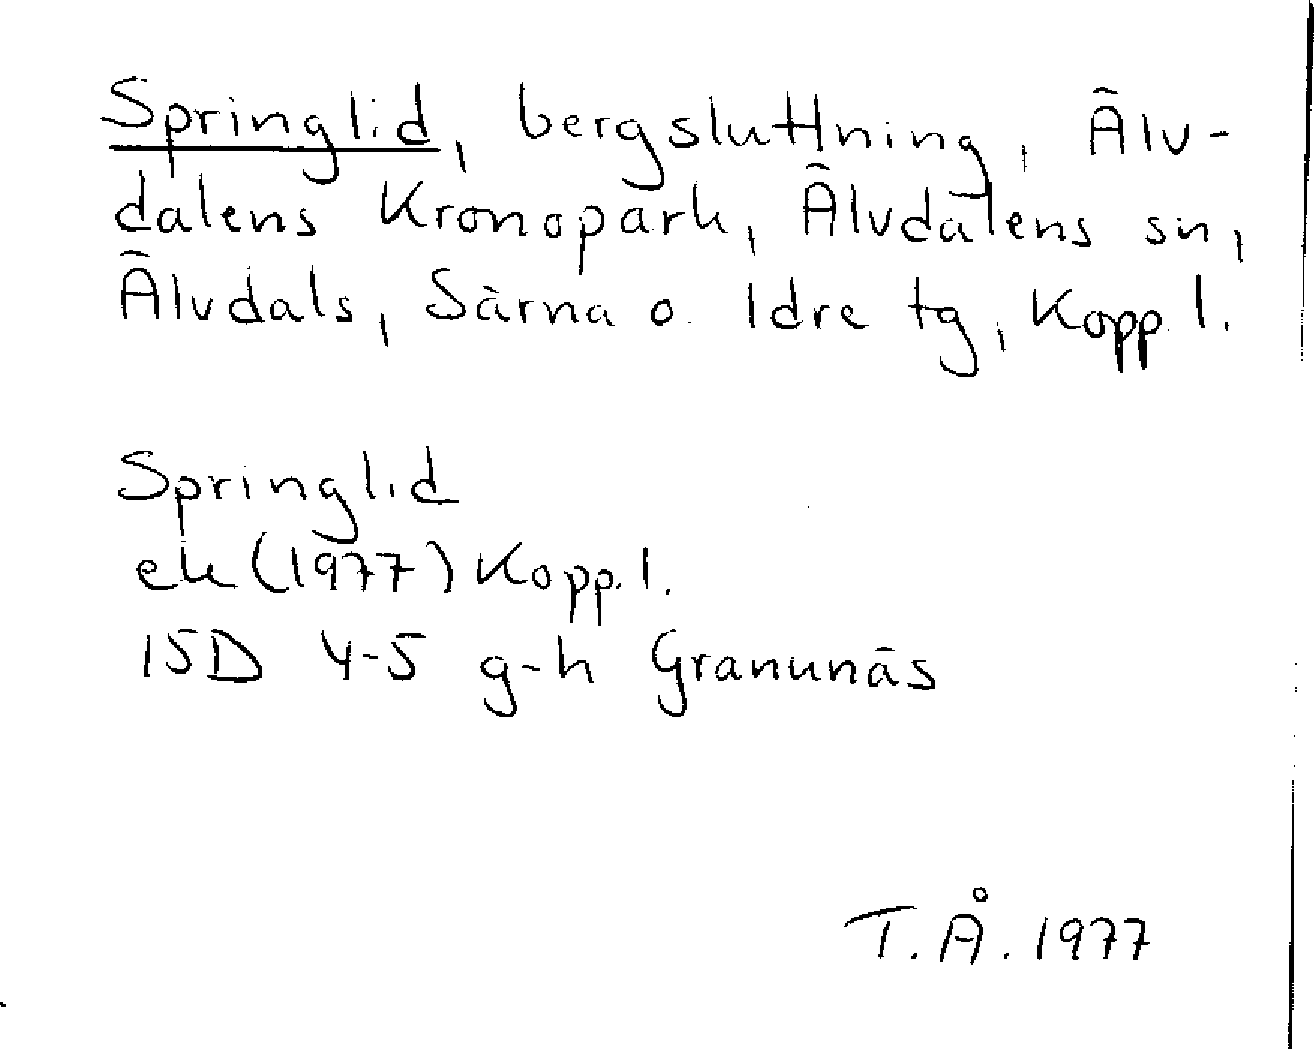 Springlid, bergsluttning, Älv-
dalens Kronopark, Älvdalens sn,
Älvdals, Särna o. Idre tg, Kopp. l.
Springlid
ek (1977) Kopp. l.
15D 4-5 g-h Granunäs
T. Å. 1977